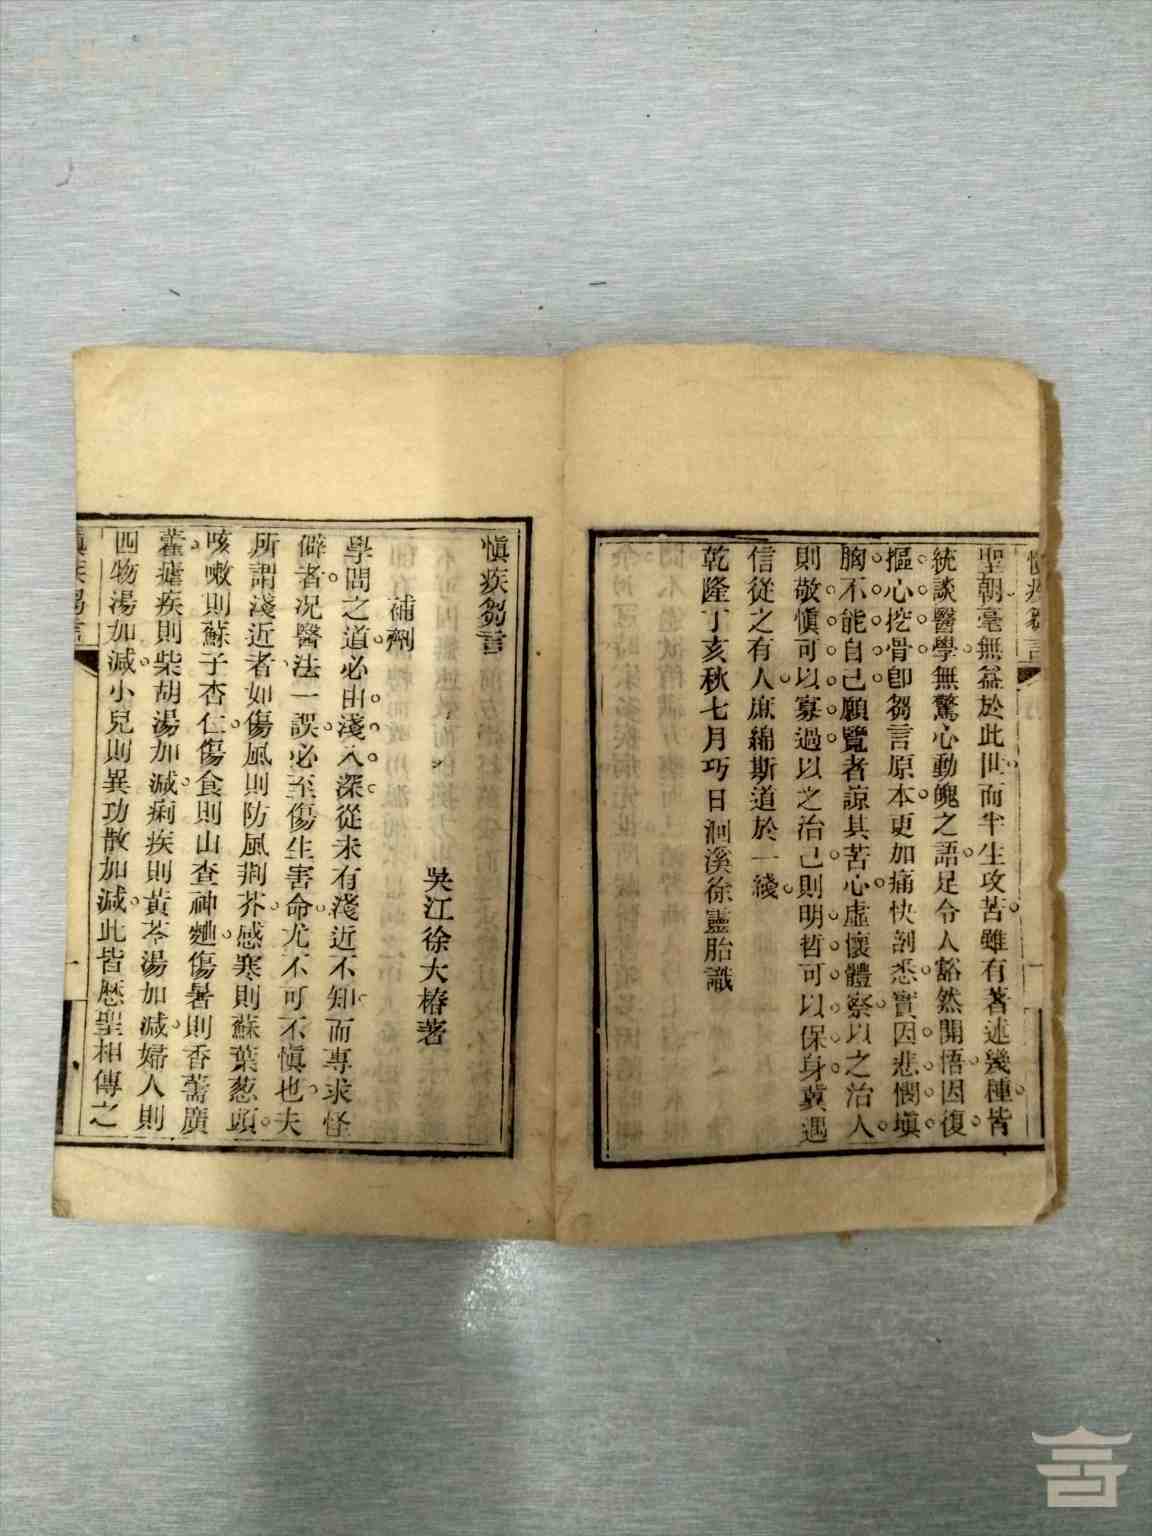 慎疾芻言
聖朝毫無益於此世而半生攻苦雖有著述幾種皆
統談醫學無驚心動魄之語足令人豁然開悟因復
摳心挖骨卽芻言原本更加痛快剖悉實因悲憫塡
胸不能自己願覽者諒其苦心虛懷體察以之治人
則敬愼可以寡過以之治己則明哲可以保身冀遇
信從之有人庶綿斯道於一綫
乾隆丁亥秋七月巧日洄溪徐靈胎識
愼疾芻言
吳江徐大椿著
補劑
學問之道必由淺入深從未有淺近不知而專求怪
僻者况醫法一誤必至傷生害命尤不可不愼也夫
所謂淺近者如傷風則防風荆芥感寒則蘇葉葱頭
咳嗽則蘇子杏仁傷食則山查神麯傷暑則香薷廣
藿瘧疾則柴胡湯加减痢疾則黃芩湯加减婦人則
四物湯加减小兒則異功散加减此皆歷聖相傳之